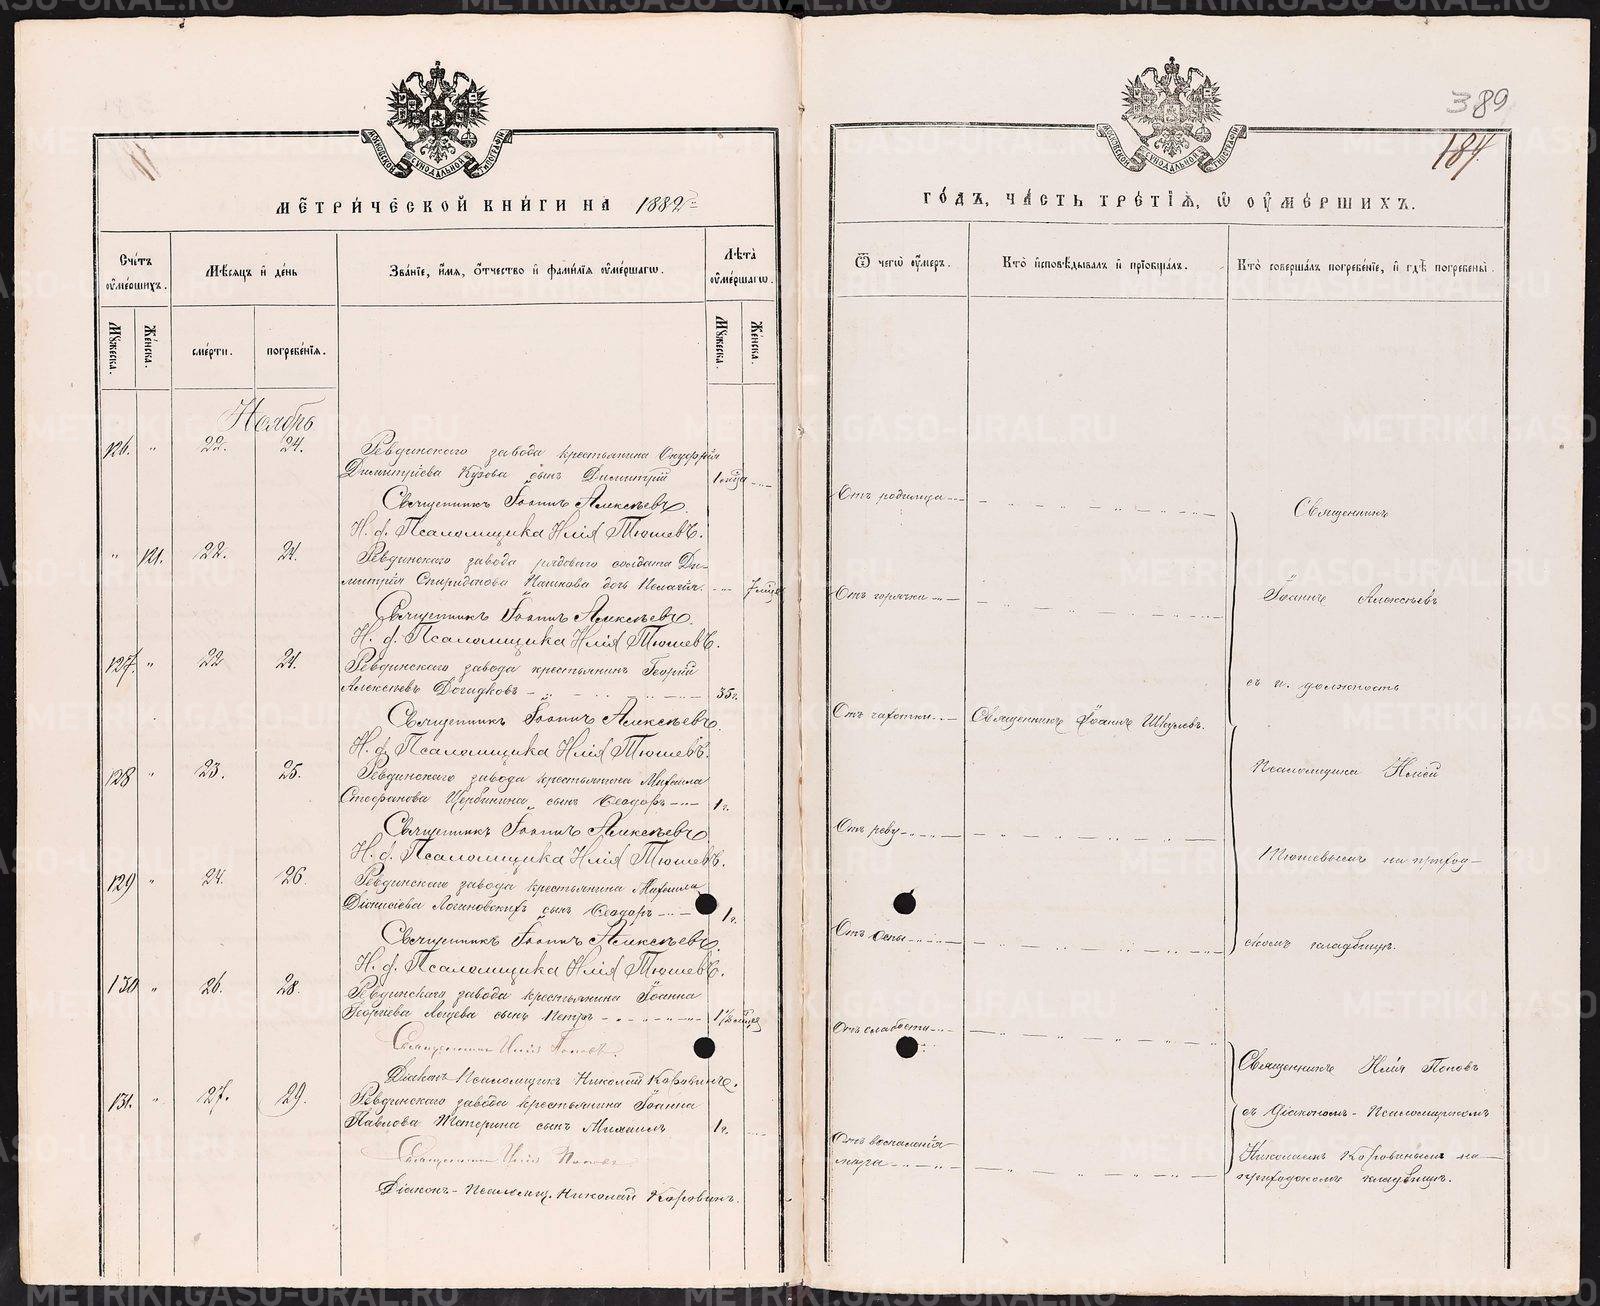 389
184.
МОСКОВСКОЙ СУНОДАЛЬНОЙ ТИПОГРАФІИ
МЕТРИЧЕСКОЙ КНИГИ НА 1882
Счетъ оумершихъ.
Мѣсяцъ и день
Званіе, имя, отчество и фамилія оумершагѡ.
Лѣта оумершагѡ.
Мужеска.
Женска.
смерти.
погребенія.
Мужеска.
Женска.
Ноябрь
126. " 22. 24. Ревдинскаго завода крестьянина Онуфрія
Димитріева Кузова сынъ Димитрій 1 мѣца
Священникъ Іоаннъ Алексѣевъ.
И. д. Псаломщика Илія Тюшевъ.
" 121. 22. 24. Ревдинскаго завода рядоваго солдата Ди-
митрія Спиридонова Пашкова дочь Пелагія. 7 мѣце
Священникъ Іоаннъ Алексѣевъ.
И. д. Псаломщика Илія Тюшевъ.
127. " 22 24. Ревдинскаго завода крестьянинъ Георгій
Алексѣевъ Догадковъ 35 г.
Священникъ Іоаннъ Алексѣевъ
И. д. Псаломщика Илія Тюшевъ.
128 " 23. 25. Ревдинскаго завода крестьянина Михаила
Стефанова Щербинина сынъ Ѳеодоръ 1 г.
Священникъ Іоаннъ Алексѣевъ
И. д. Псаломщика Илія Тюшевъ.
129 " 24. 26. Ревдинскаго завода крестьянина Михаила
Діонисіева Логиновскихъ сынъ Ѳеодоръ 1 г.
Священникъ Іоаннъ Алексѣевъ.
И. д. Псаломщика Илія Тюшевъ.
130 " 26. 28. Ревдинскаго завода крестьянина Іоанна
Георгіева сынъ Петръ 1 1/2 мѣцед
Священникъ Илія Поповъ.
Діаконъ Псаломщикъ Николай Коровинъ.
131. " 27. 29. Ревдинскаго завода крестьянина Іоанна
Павлова Тетерина сынъ Михаилъ 1 г.
Священникъ Илія Поповъ
Діаконъ-Псаломщ. Николай Коровинъ.
ГОДЪ, ЧАСТЬ ТРЕТІЯ, Ѡ ОУМЕРШИХЪ.
Ѿ чегѡ оумеръ.
Кто исповѣдывалъ и пріобщалъ.
Кто совершалъ погребеніе, и гдѣ погребены.
Отъ родимца
Отъ горячки
Отъ чахотки Священникъ Іоаннъ Шкулевъ.
Отъ реву
Отъ оспы
Отъ слабости
Отъ воспаленія
Священникъ
Іоаннъ Алексѣевъ
съ и. должность
Псаломщика Иліей
Тюшевымъ на приход-
скомъ кладбищѣ.
Священникъ Илія Поповъ
съ Діакономъ-Псаломщикомъ
Николаемъ Коровинымъ на
приходскомъ кладбищѣ.
METRIKI.GASO-URAL.RU